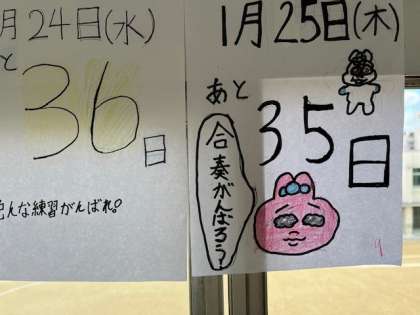 月24日(水)
と
36
日
んな練習がんばれ。
1月25日(木)
あと
35
日
合奏がんばろう!